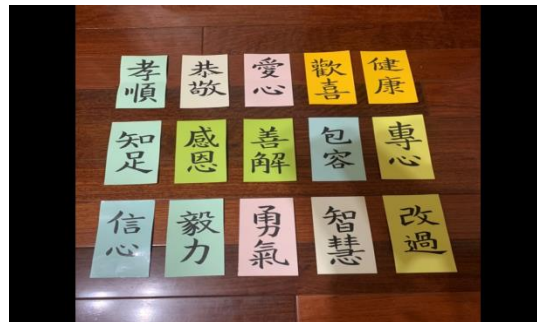 孝順 恭敬 愛心 歡喜 健康
知足 感恩 善解 包容 專心
信心 毅力 勇氣 智慧 改過